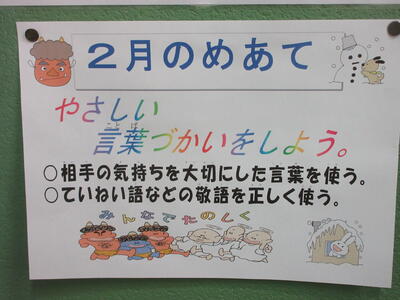 ２月のめあて
やさしい
言葉づかいをしよう。
○相手の気持ちを大切にした言葉を使う。
○ていねい語などの敬語を正しく使う。
みんなでたのしく